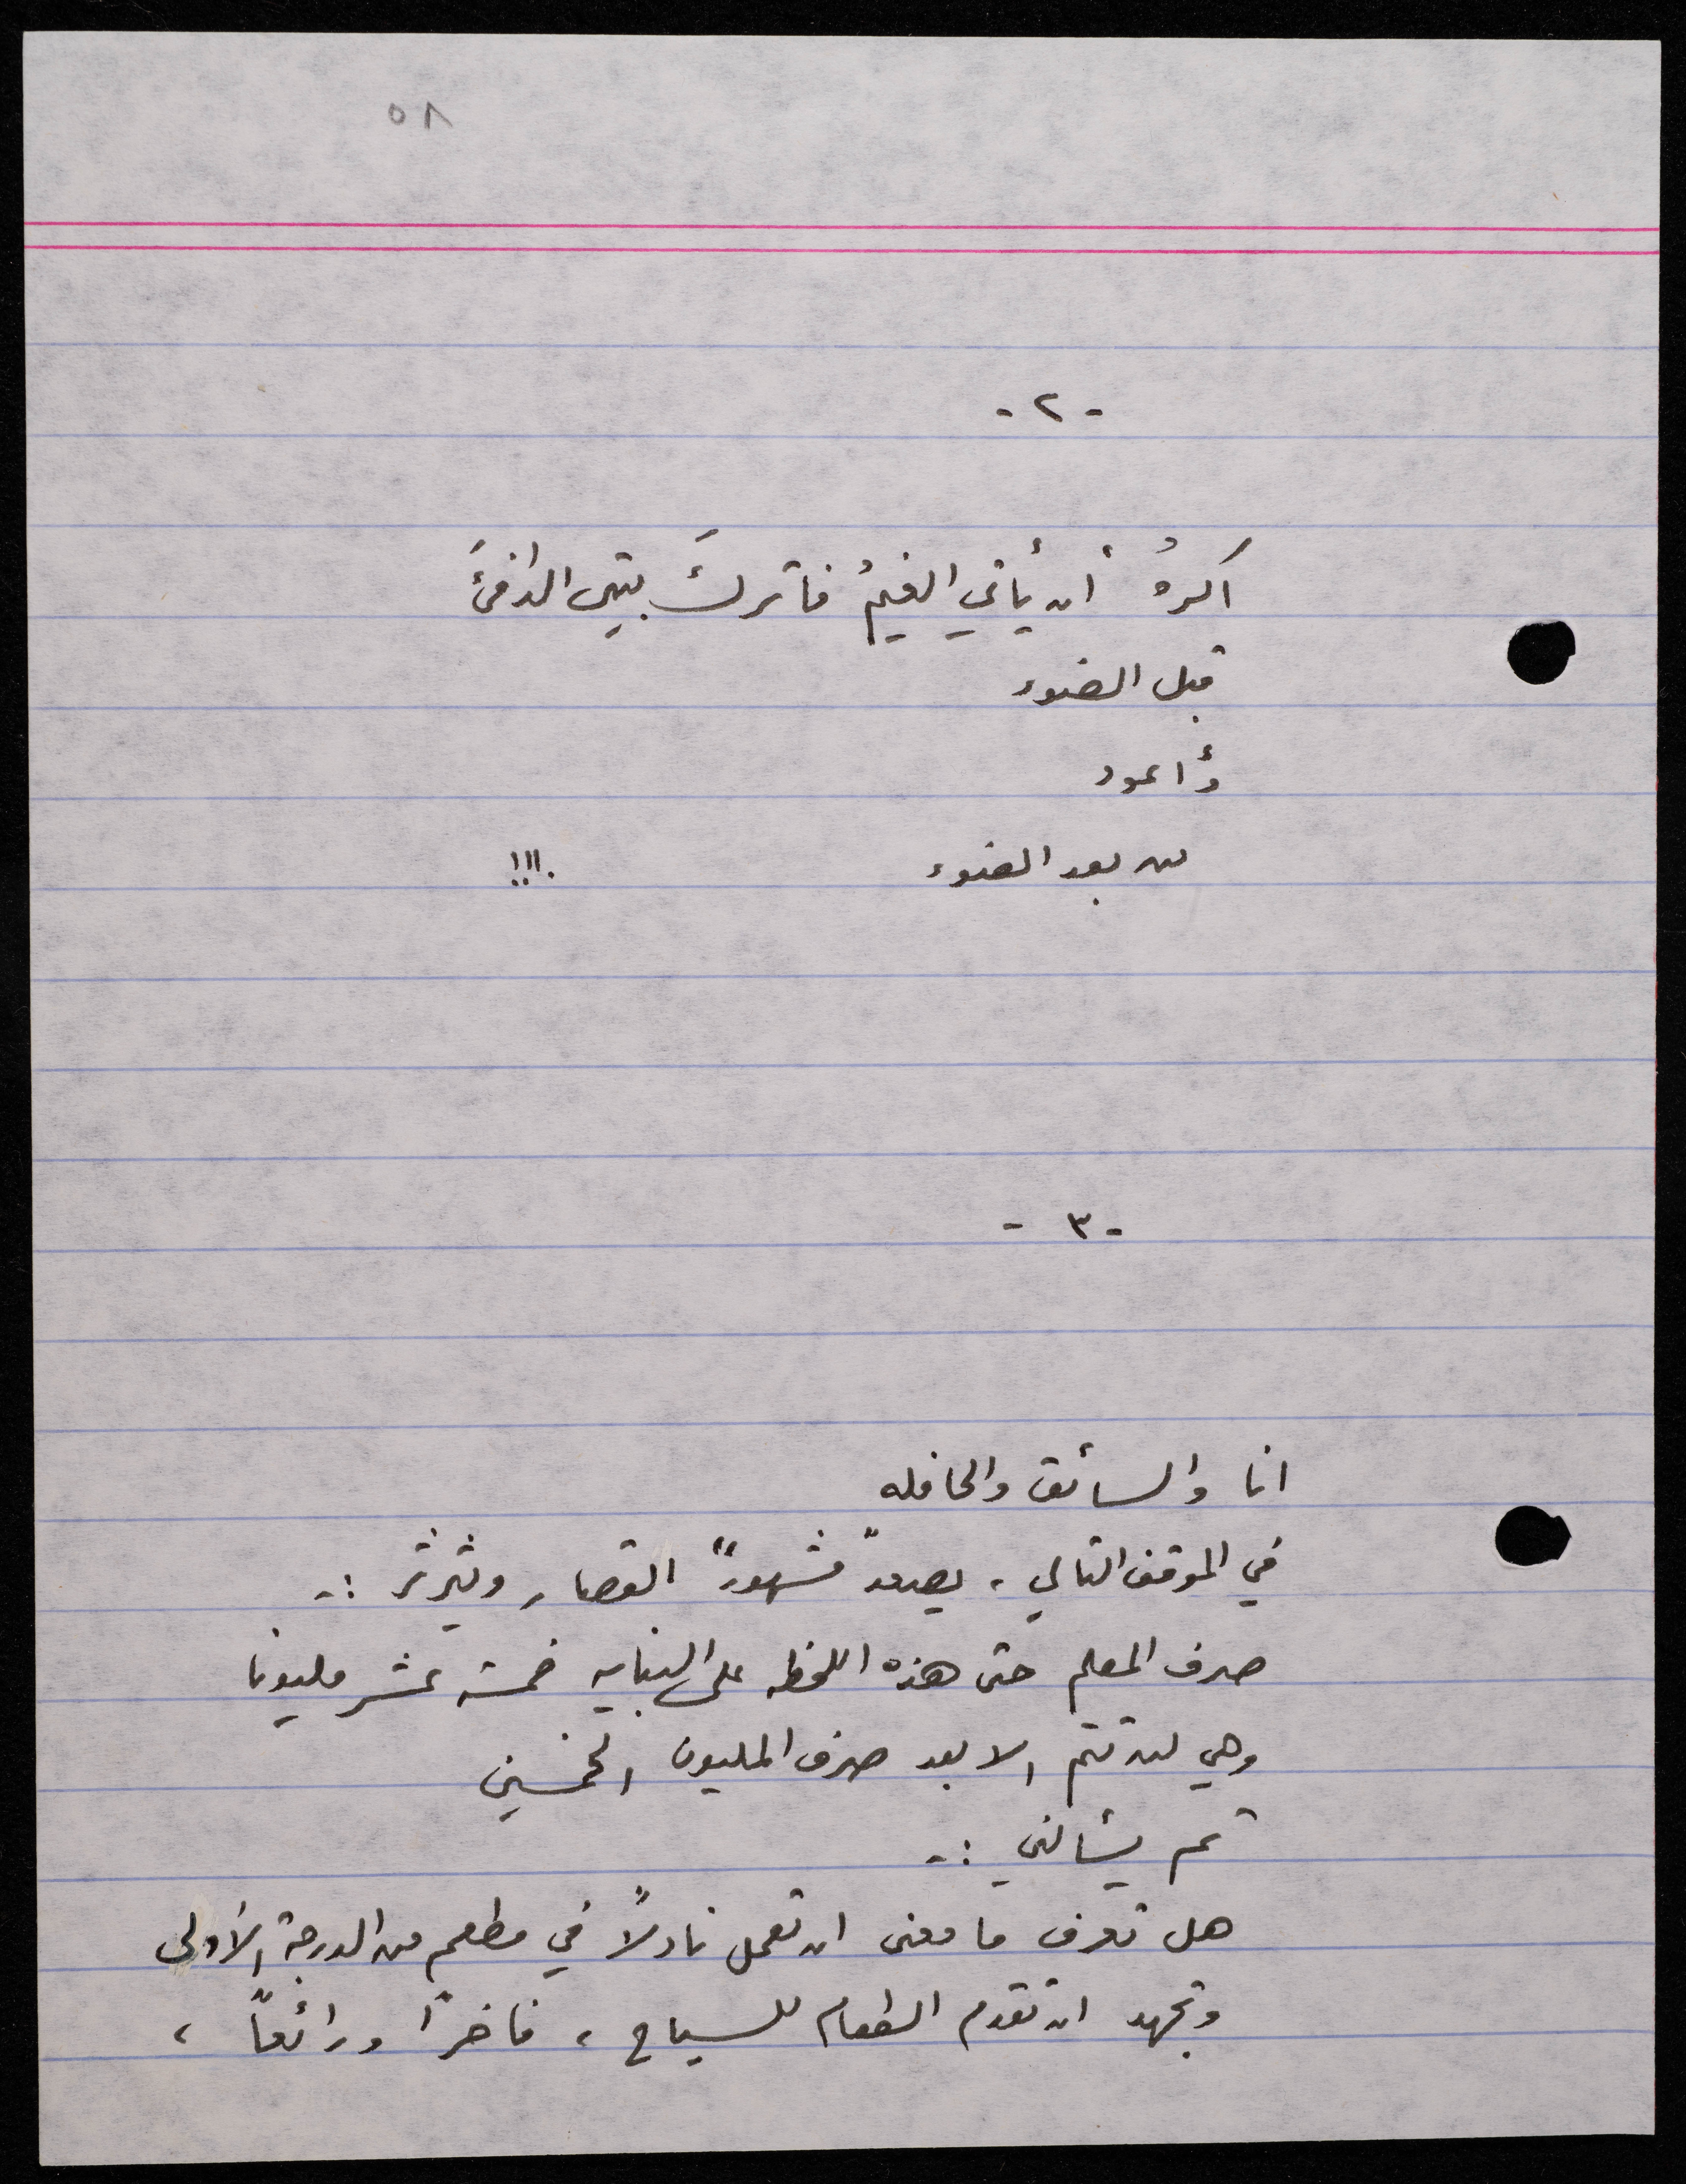 ٥٨
- ٢ -
اكرهُ أن يأتي الغيمُ فأتركَ بيتي الدافئَ
قبل الضوء
وأعود
من بعد الضوء !!!.
- ٣ -
انا والسائق والحافله
في الموقف التالي، يصعد "مشهور" القصار ويثرثر :-
صرف المعلم حتى هذه اللحظه على البنايه خمسة عشر مليونا
وهي لن تتم الا بعد صرف المليون الخمسين
ثم يسألني :-
هل تعرف ما معنى ان تعمل نادلاً في مطعم من الدرجة الأولى
وتجهد ان تقدم الطعام للسياح ، فاخراً ورائعاً ،